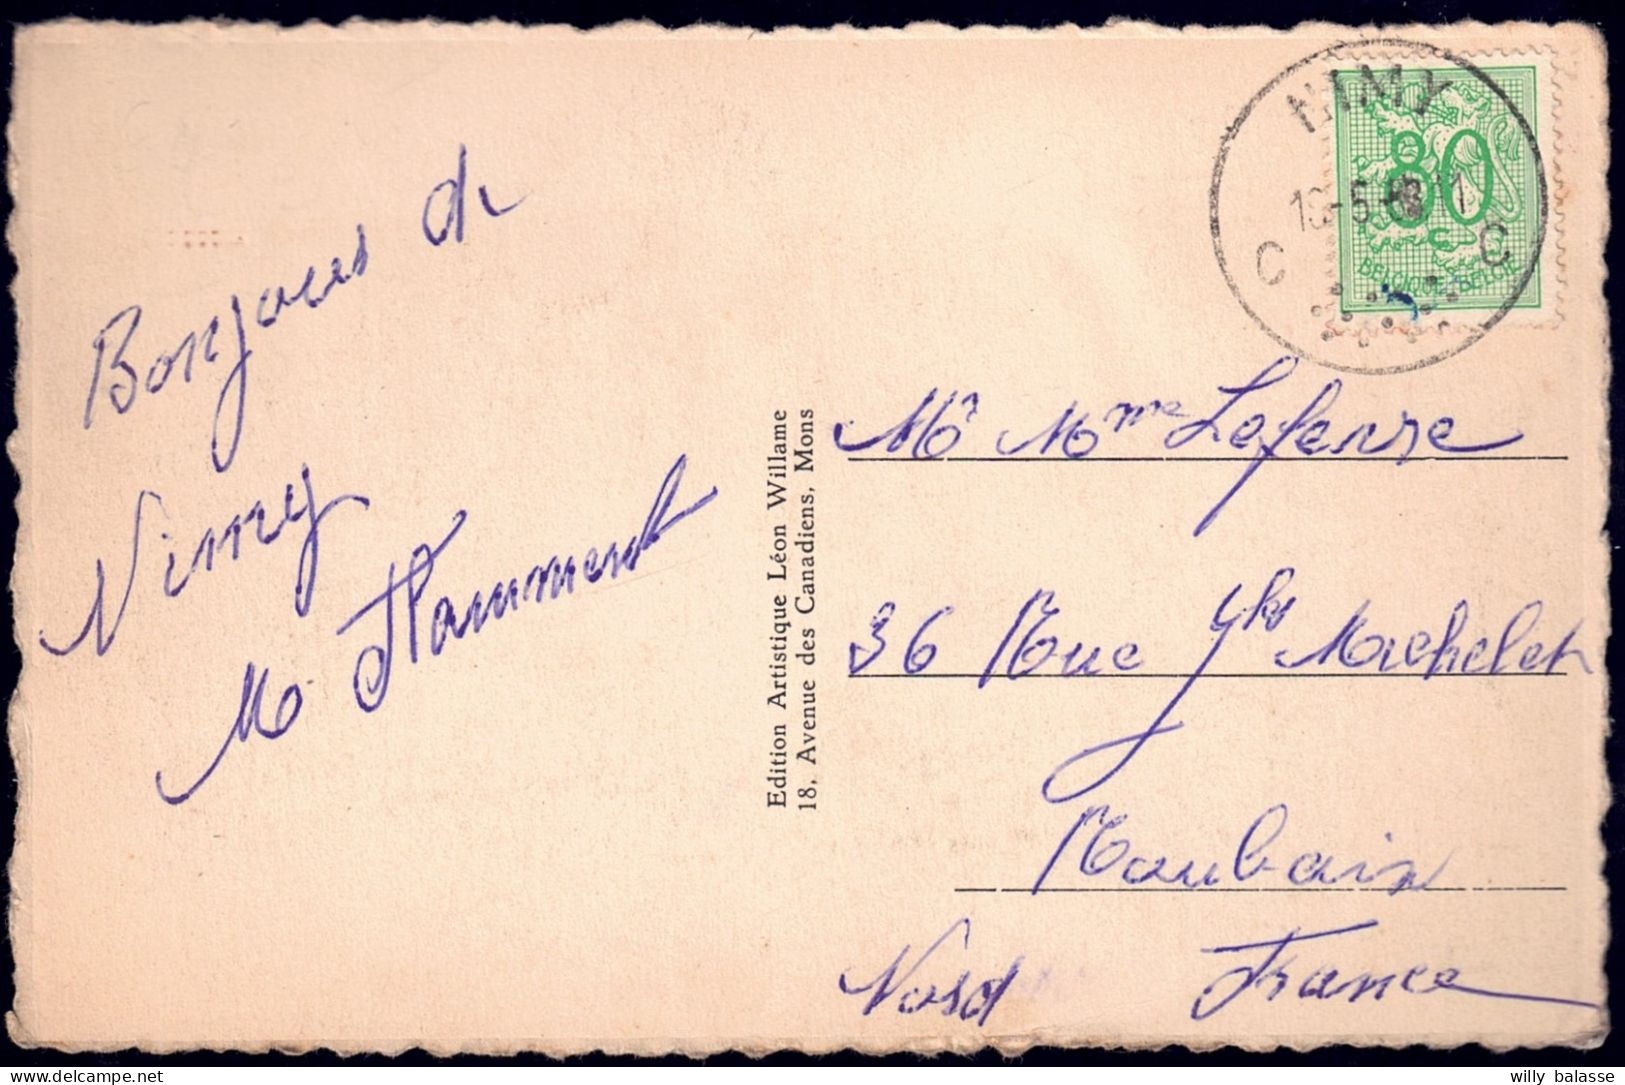 Bonjours de
Nimy
M. Haumont
Edition Artistique Léon Willame
18, Avenue des Canadiens, Mons
NIMY
-5-
11
C C
80
BELGIQUE-BELGIE
Mr Mme Lefevre
36 Rue Jles Michelet
Roubaix
Nord France
willy balasse